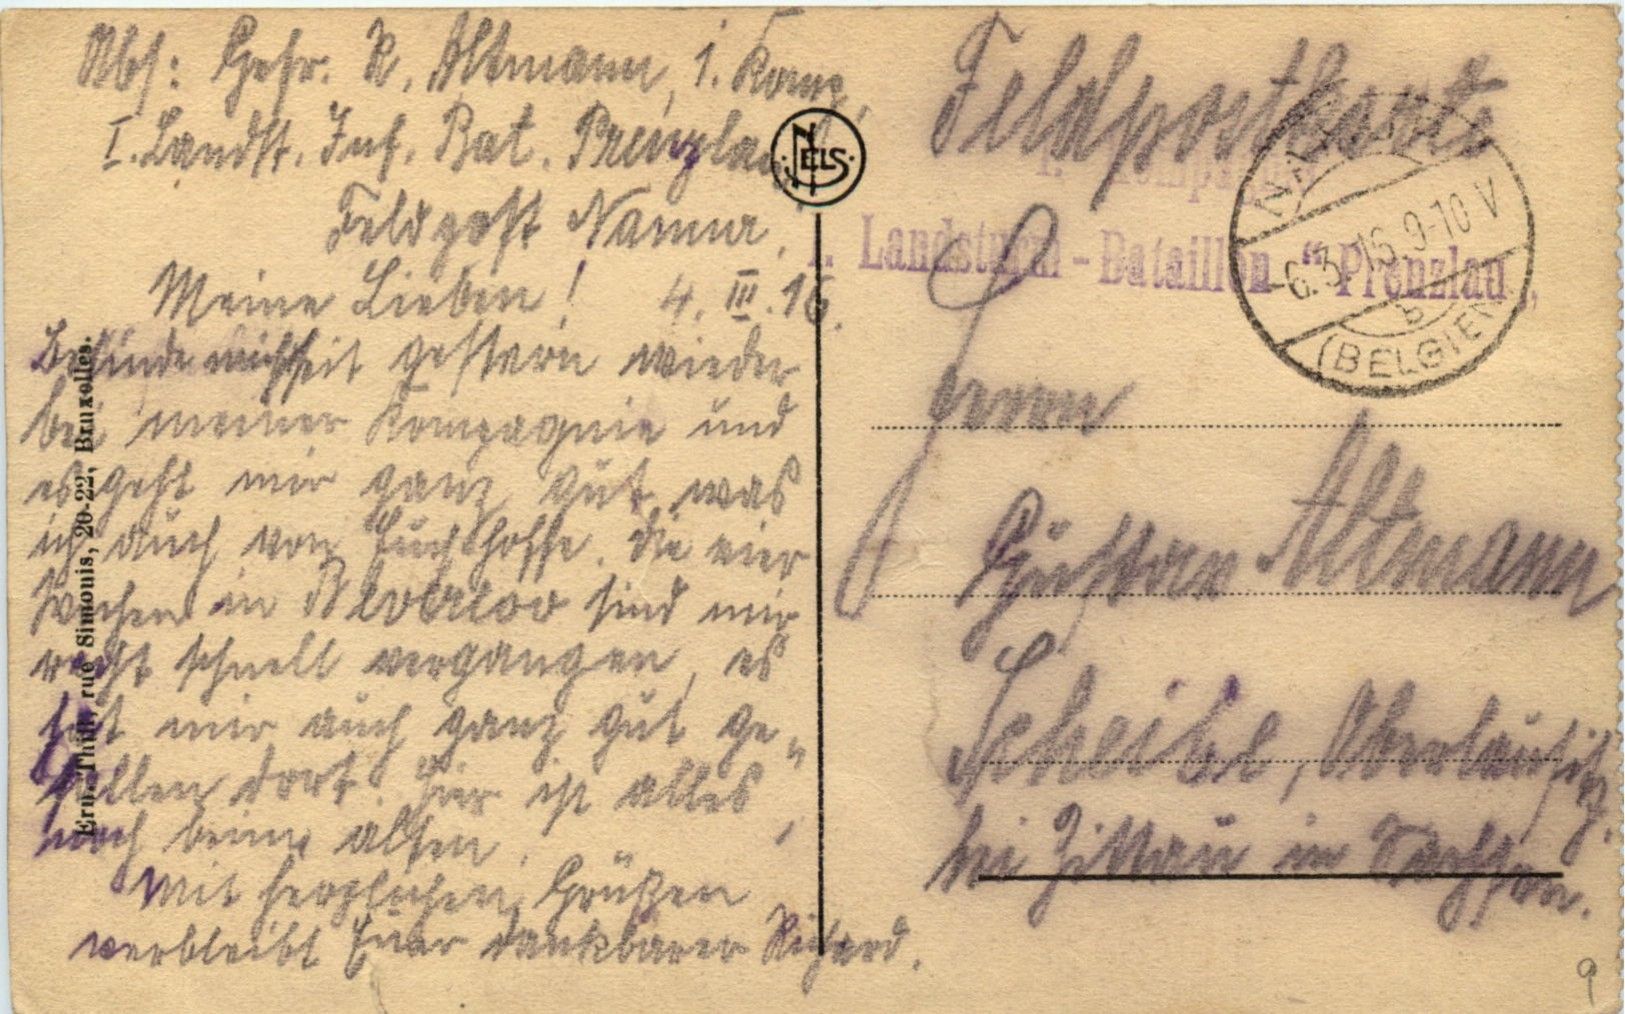 Abs: Gefr. R. Altmann, 1. Komp.
I. Landst. Inf. Bat. Prenzlau,
Feldpost Namur,
Meine Lieben! 4. III. 16.
Befinde mich seit gestern wieder
bei meiner Kompagnie und
es geht mir ganz gut, was
ich auch von Euch hoffe. Die vier
Wochen in sind mir
recht schnell vergangen, es
hat mir auch ganz gut ge-
fallen dort. Hier ist alles
noch beim alten.
Mit herzlichen Grüßen
verbleibt Euer dankbarer Richard.
NELS
Ern. Thill, rue Simonis, 20-22, Bruxelles.
Feldpostkarte
1. Kompagnie
I. Landsturm-Bataillon "Prenzlau"
NAMUR
-6.3.16. 9-10 V
b
(BELGIEN)
Herrn
Gustav Altmann
Scheibe, Oberlausitz,
bei Zittau in Sachsen.
9